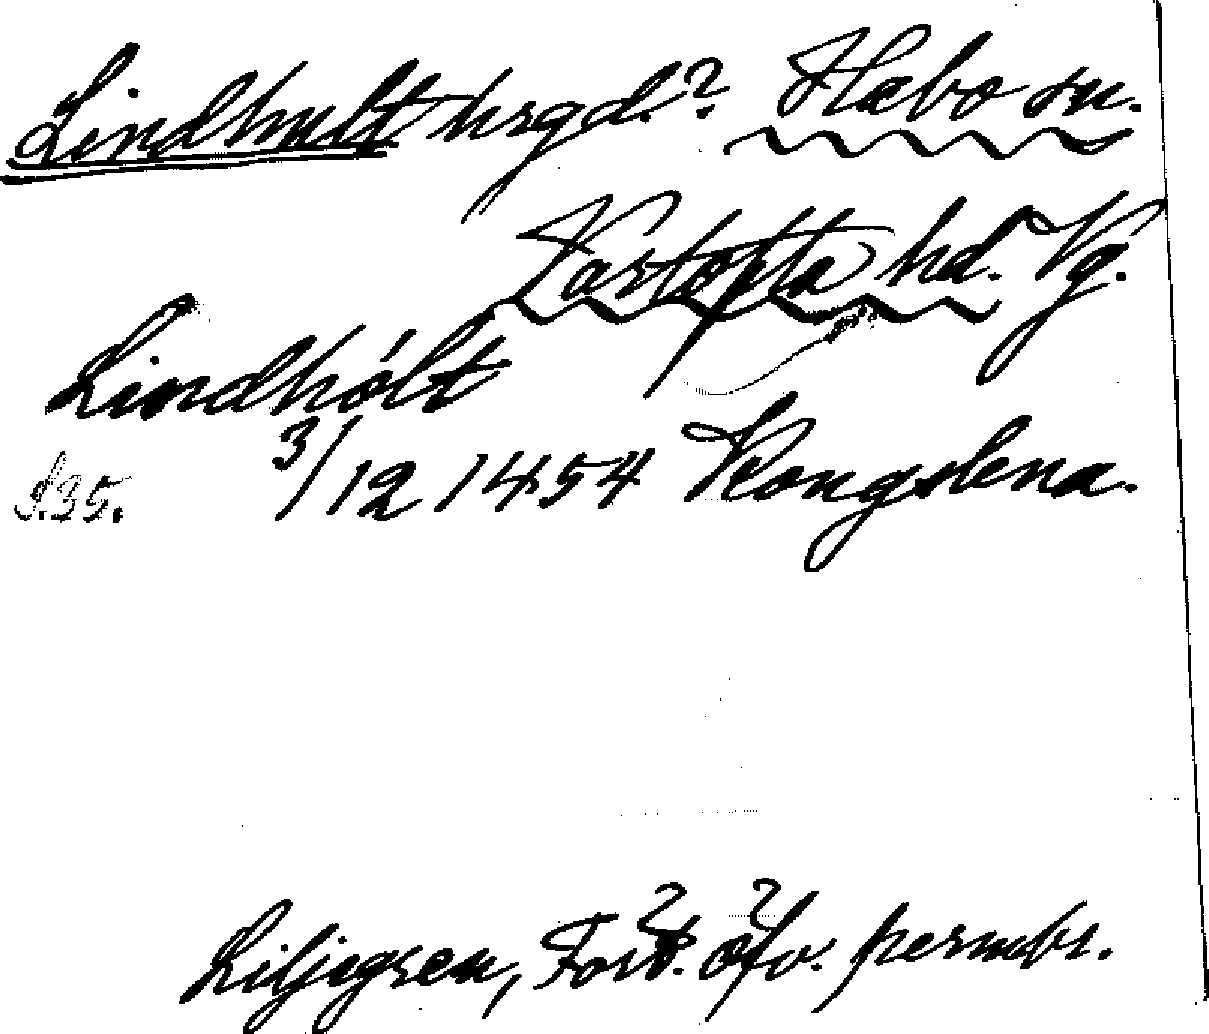 Lindhult hrgd.? Habo sn.
Vartofta hd. Vg.
Lindhólt
S.35. 3/12 1454 Kongslena.
Liljegren, Fört. öfv. permbr.